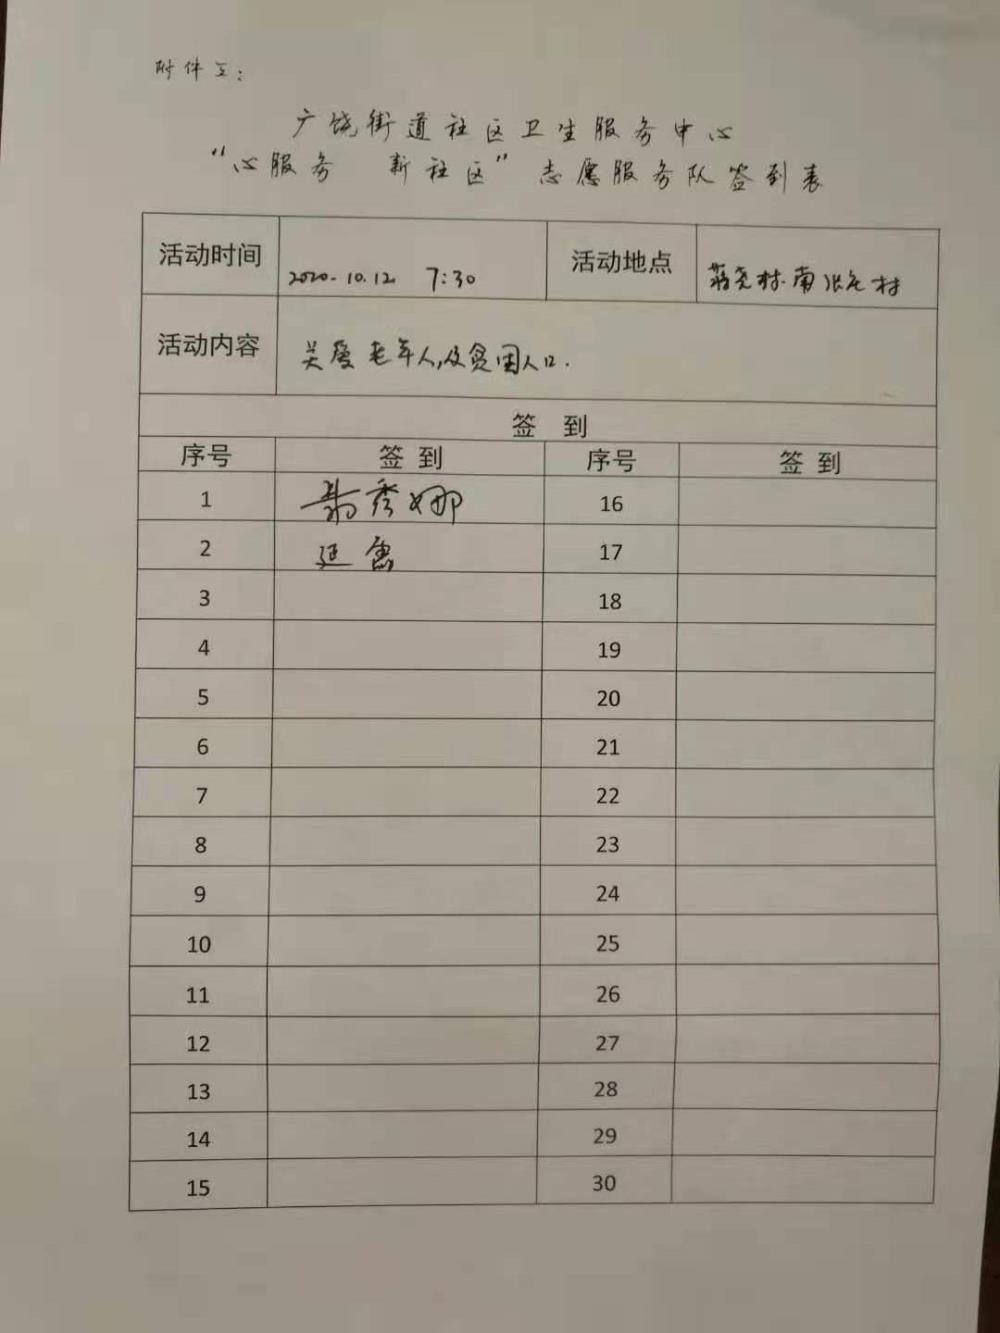 附件五：
广饶街道社区卫生服务中心
“心服务 新社区”志愿服务队签到表
活动时间 2020.10.12 7:30 活动地点 村.南 村
活动内容 关爱老年人,及贫困人口.
签 到
序号 签 到 序号 签 到
1 秀娜 16
2 延雷 17
3 18
4 19
5 20
6 21
7 22
8 23
9 24
10 25
11 26
12 27
13 28
14 29
15 30